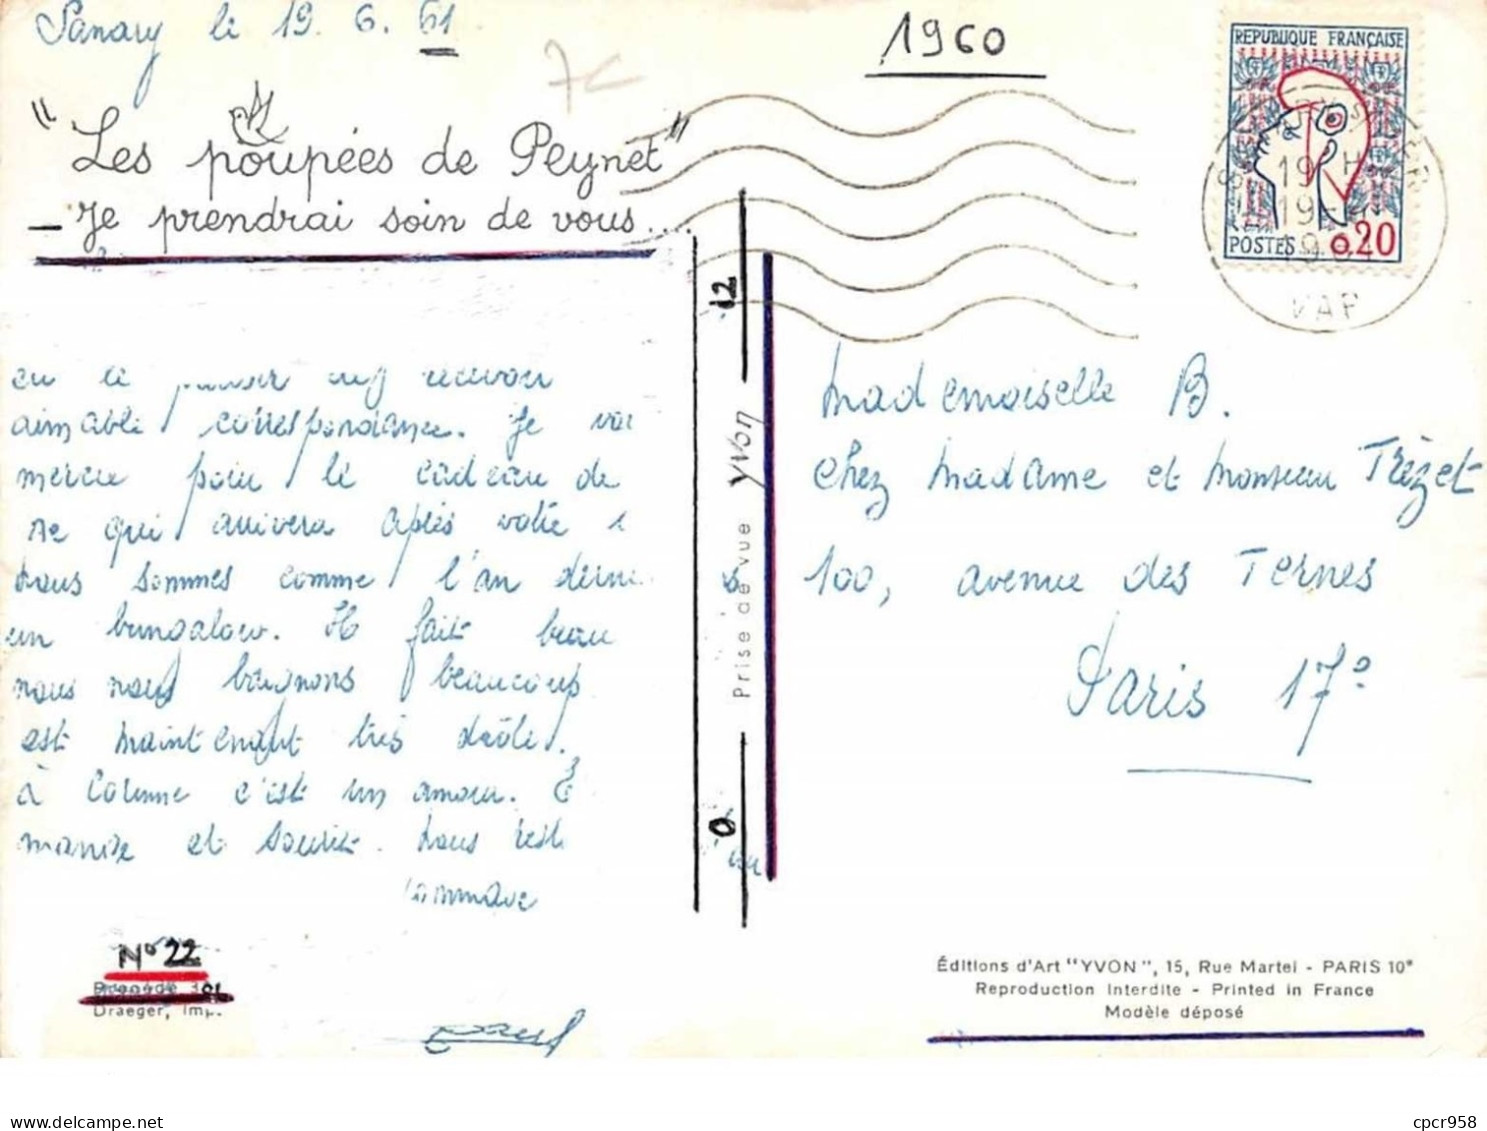 Sanary le 19. 6. 61
1960
7€
"Les poupées de Peynet"
— Je prendrai soin de vous...
REPUBLIQUE FRANÇAISE
POSTES 0.20
19 H
VAR
12
Prise de vue yvon
0
recevoir
aimable correspondance. Je
pour le cadeau de
qui arrivera après votre
nous sommes comme l'an
un bungalow. Il fait beau
nous nous baignons beaucoup
est maintenant très drôle.
à c'est un amour.
et sourit. Nous
Mademoiselle B.
Chez Madame et Monsieur Trézet
100, avenue des Ternes
Paris 17e
N° 22
Draeger, Imp.
Éditions d'Art "YVON", 15, Rue Martel - PARIS 10e
Reproduction Interdite - Printed in France
Modèle déposé
cpcr958